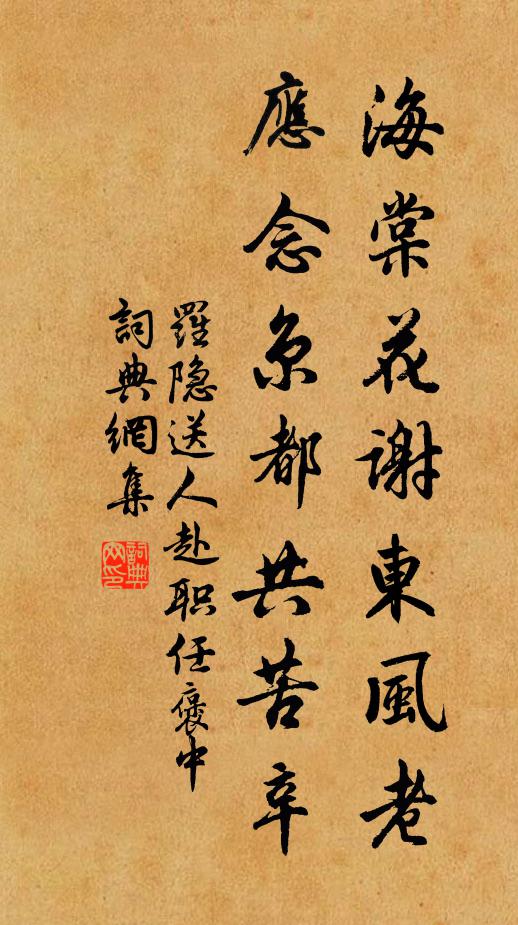 海棠花謝東風老
應念京都共苦辛
羅隐送人赴职任褒中
詞典網集
詞典網印